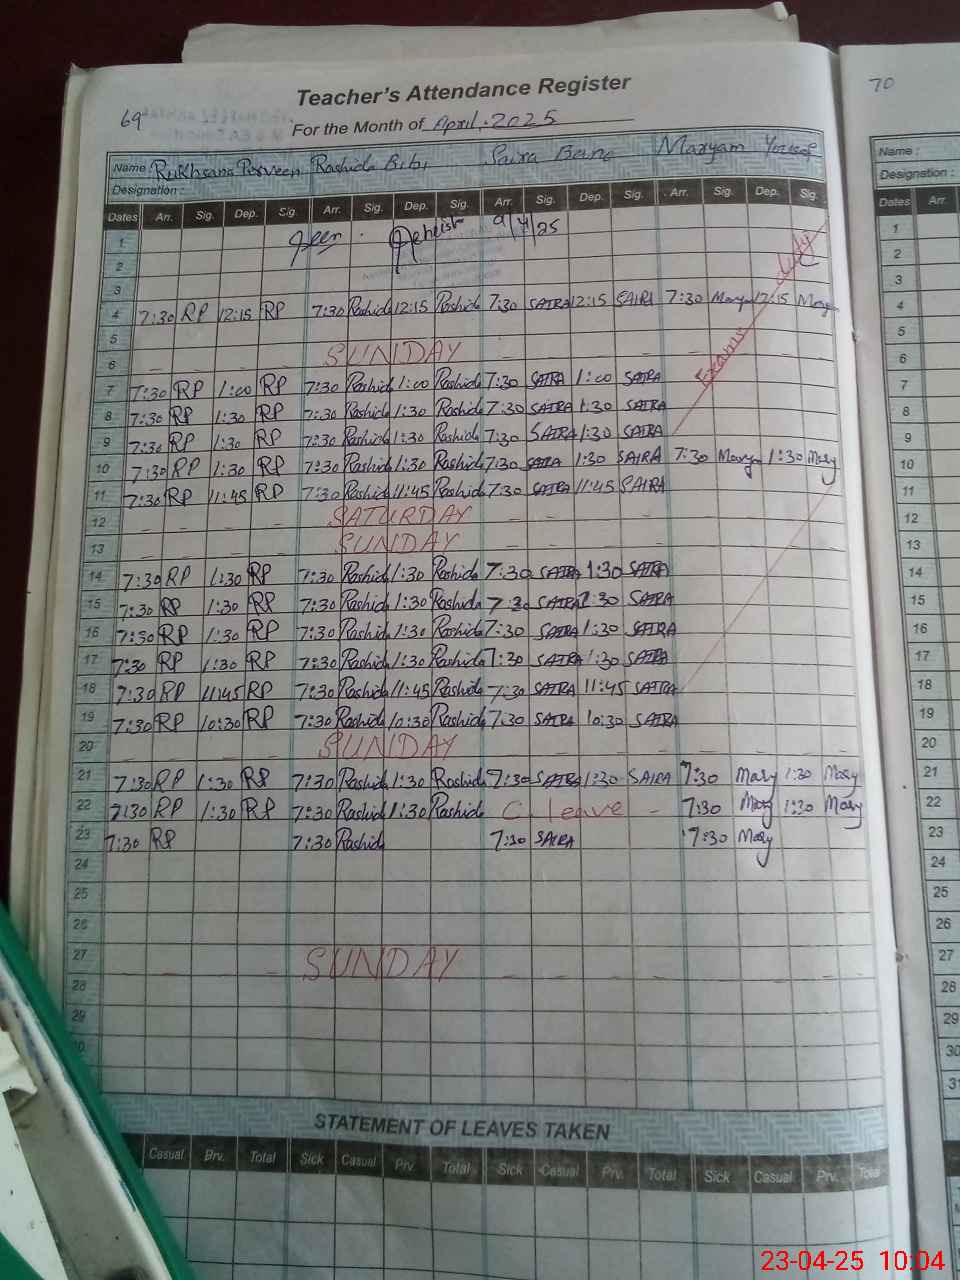 70
Teacher's Attendance Register
69
For the Month of April, 2025
Name : Rukhsana Perveen Rashida Bibi Saira Bano Maryam Yousaf
Designation :
Dates Arr. Sig. Dep. Sig. Arr. Sig. Dep. Sig. Arr. Sig. Dep. Sig. Arr. Sig. Dep. Sig.
1 Seen 9/4/25
2
3
4 7:30 RP 12:15 RP 7:30 Rashida 12:15 Rashida 7:30 SAIRA 12:15 SAIRA 7:30 Mary 12:15 Mary
Exams duty
5
6 SUNDAY
7 7:30 RP 1:00 RP 7:30 Rashida 1:00 Rashida 7:30 SAIRA 1:00 SAIRA
8 7:30 RP 1:30 RP 7:30 Rashida 1:30 Rashida 7:30 SAIRA 1:30 SAIRA
9 7:30 RP 1:30 RP 7:30 Rashida 1:30 Rashida 7:30 SAIRA 1:30 SAIRA
10 7:30 RP 1:30 RP 7:30 Rashida 1:30 Rashida 7:30 SAIRA 1:30 SAIRA 7:30 Mary 1:30 Mary
11 7:30 RP 11:45 RP 7:30 Rashida 11:45 Rashida 7:30 SAIRA 11:45 SAIRA
12 SATURDAY
13 SUNDAY
14 7:30 RP 1:30 RP 7:30 Rashida 1:30 Rashida 7:30 SAIRA 1:30 SAIRA
15 7:30 RP 1:30 RP 7:30 Rashida 1:30 Rashida 7:30 SAIRA 1:30 SAIRA
16 7:30 RP 1:30 RP 7:30 Rashida 1:30 Rashida 7:30 SAIRA 1:30 SAIRA
17 7:30 RP 1:30 RP 7:30 Rashida 1:30 Rashida 7:30 SAIRA 1:30 SAIRA
18 7:30 RP 11:45 RP 7:30 Rashida 11:45 Rashida 7:30 SAIRA 11:45 SAIRA
19 7:30 RP 10:30 RP 7:30 Rashida 10:30 Rashida 7:30 SAIRA 10:30 SAIRA
20 SUNDAY
21 7:30 RP 1:30 RP 7:30 Rashida 1:30 Rashida 7:30 SAIRA 1:30 SAIRA 7:30 Mary 1:30 Mary
22 7:30 RP 1:30 RP 7:30 Rashida 1:30 Rashida C. leave 7:30 Mary 1:30 Mary
23 7:30 RP 7:30 Rashida 7:30 SAIRA 7:30 Mary
24
25
26
27 SUNDAY
28
29
STATEMENT OF LEAVES TAKEN
Casual Prv. Total Sick Casual Prv. Total Sick Casual Prv. Total Sick Casual Prv. Total
Name :
Designation :
Dates Arr.
1
2
3
4
5
6
7
8
9
10
11
12
13
14
15
16
17
18
19
20
21
22
23
24
25
26
27
28
29
30
31
23-04-25 10:04